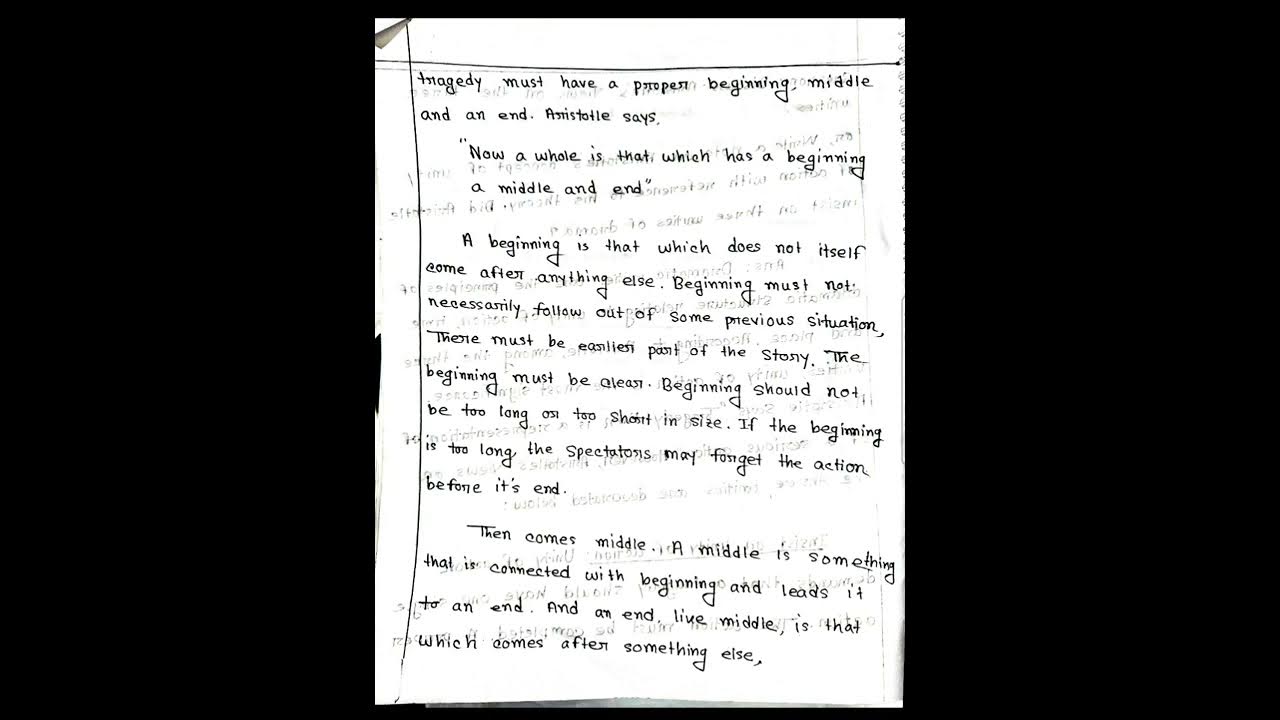 tragedy must have a proper beginning, middle
and an end. Aristotle says,
"Now a whole is that which has a beginning
a middle and end"
A beginning is that which does not itself
come after anything else. Beginning must not
necessarily follow out of some previous situation,
There must be earlier part of the story. The
beginning must be clear. Beginning should not
be too long or too short in size. If the beginning
is too long, the spectators may forget the action
before it's end.
Then comes middle. A middle is something
that is connected with beginning and leads it
to an end. And an end, live middle, is that
which comes after something else,